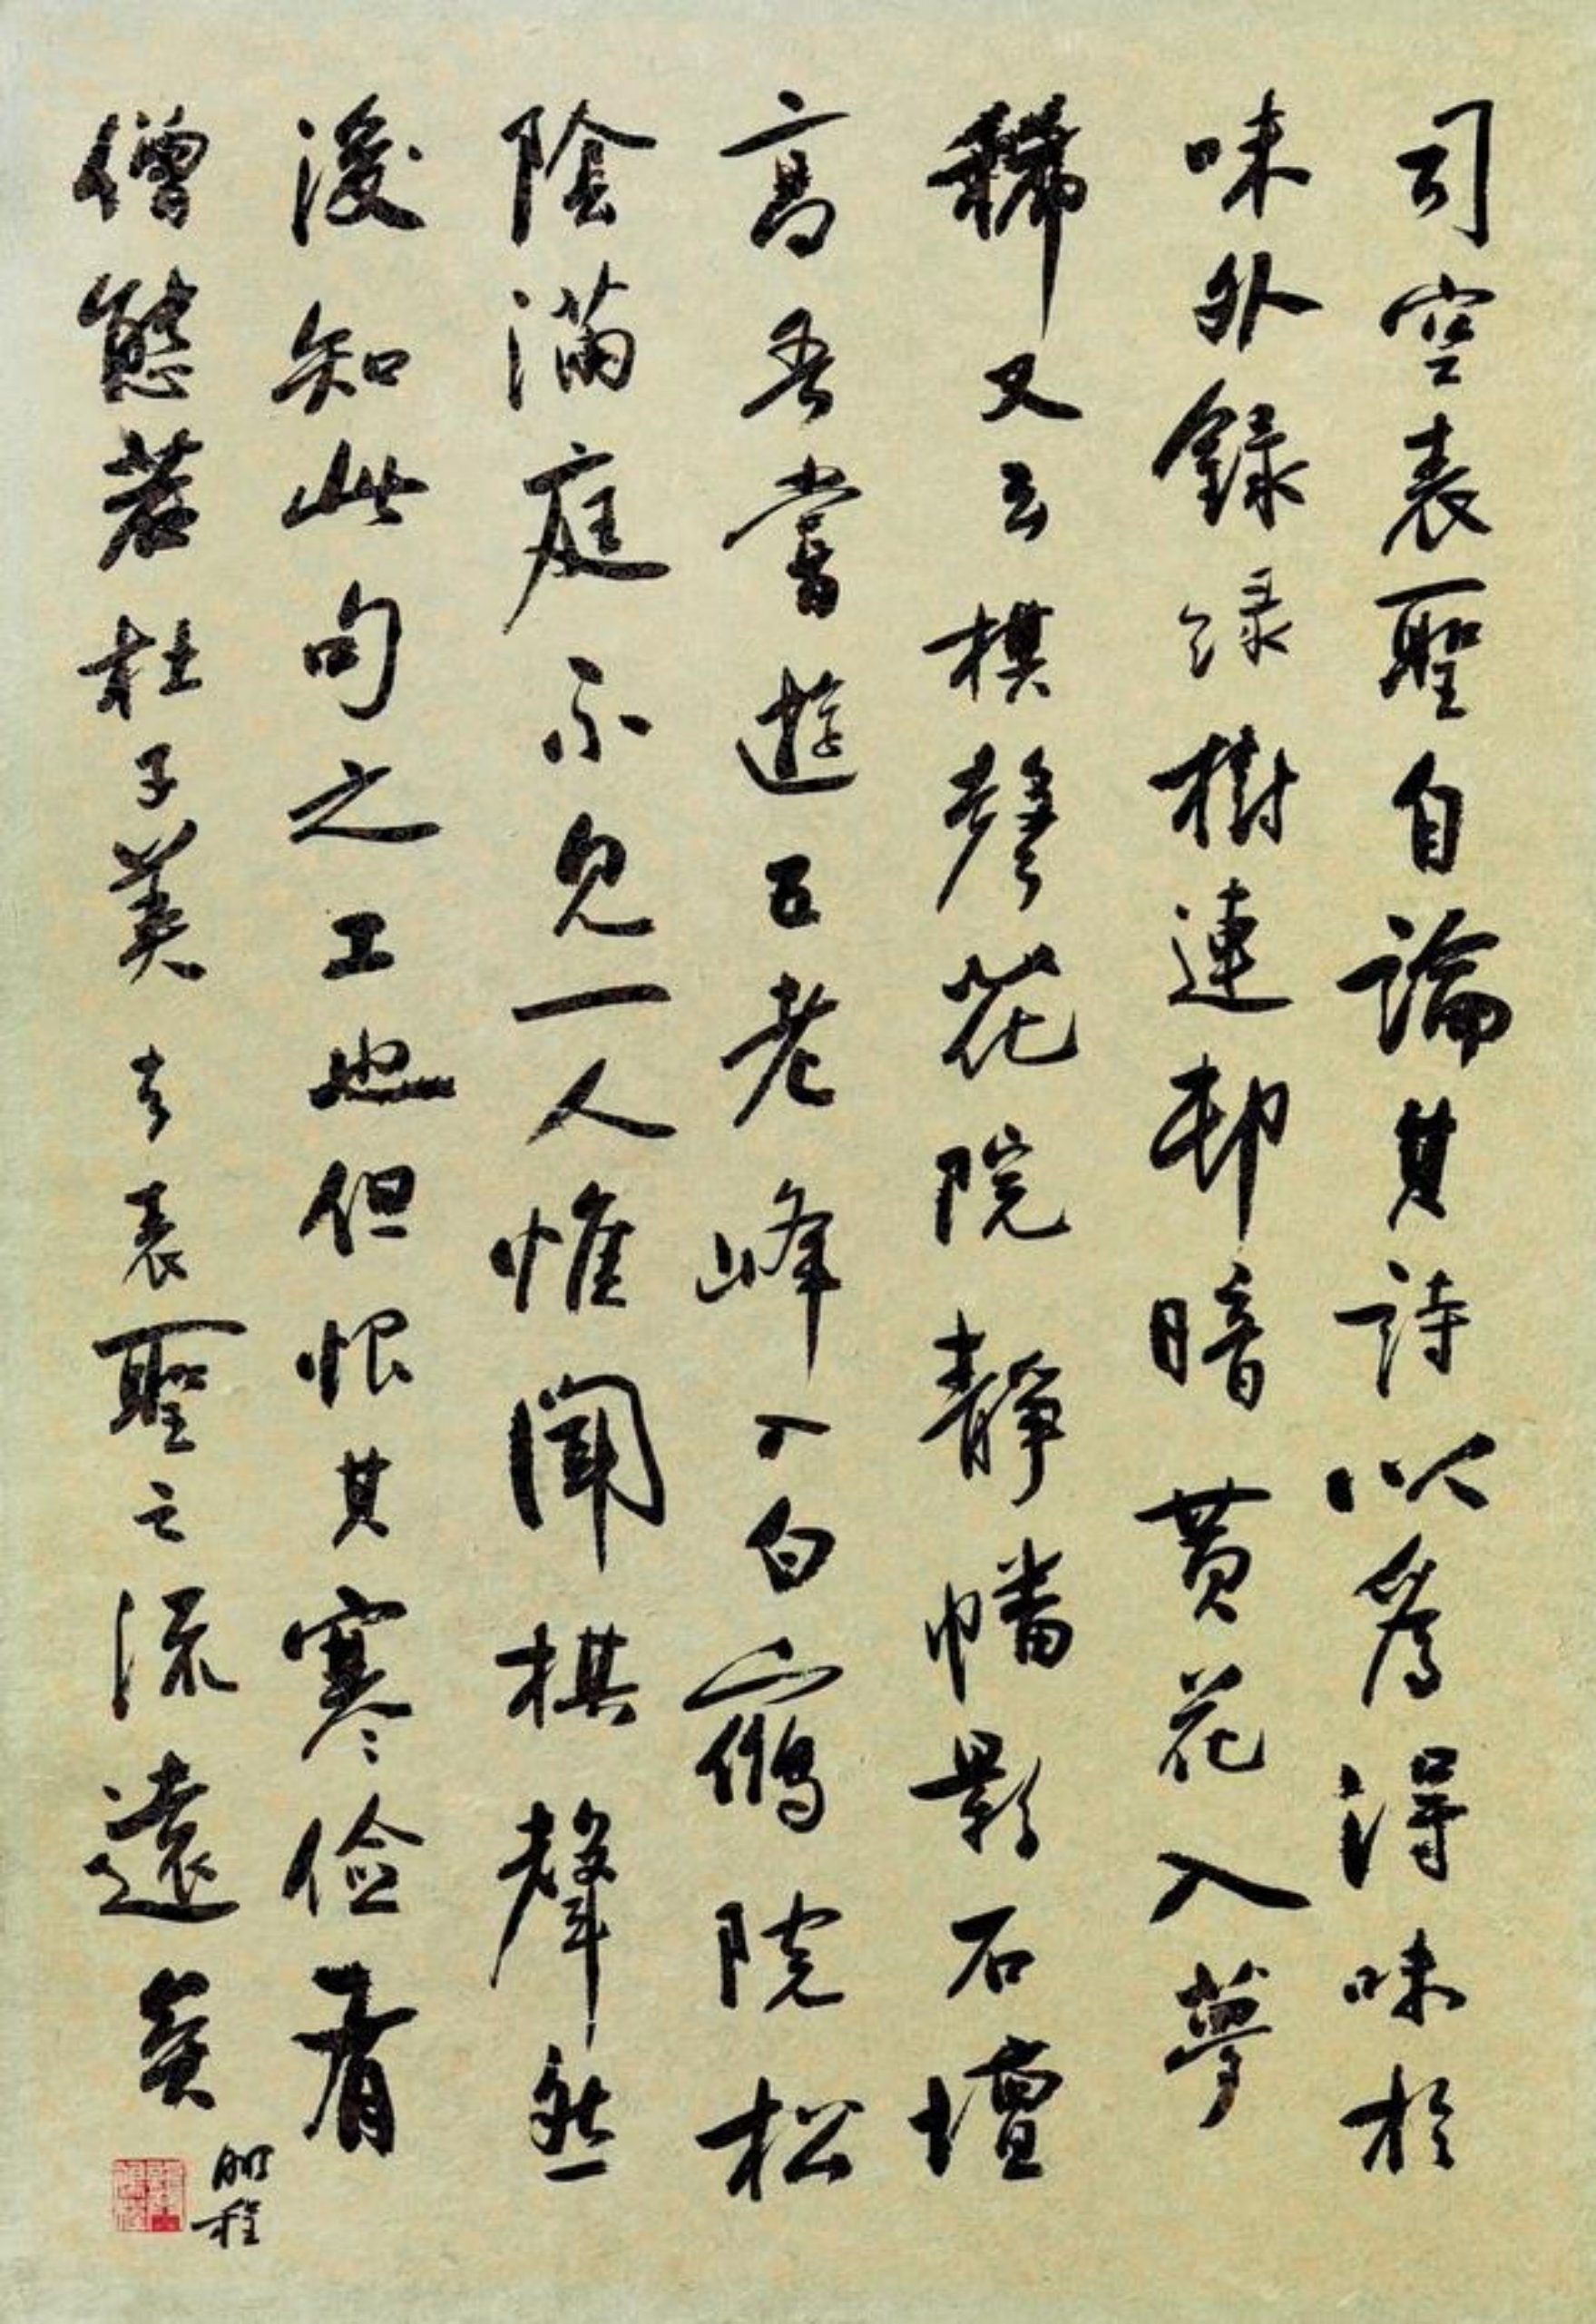 司空表聖自論其詩以為得味於
味外錄綠樹連邨暗黃花入夢
稀又云棋聲花院靜幡影石壇
高吾嘗遊五老峰入白鶴院松
陰滿庭不見一人惟聞棋聲然
後知此句之工也但恨其寒儉有
僧態若杜子美云表聖之流遠矣